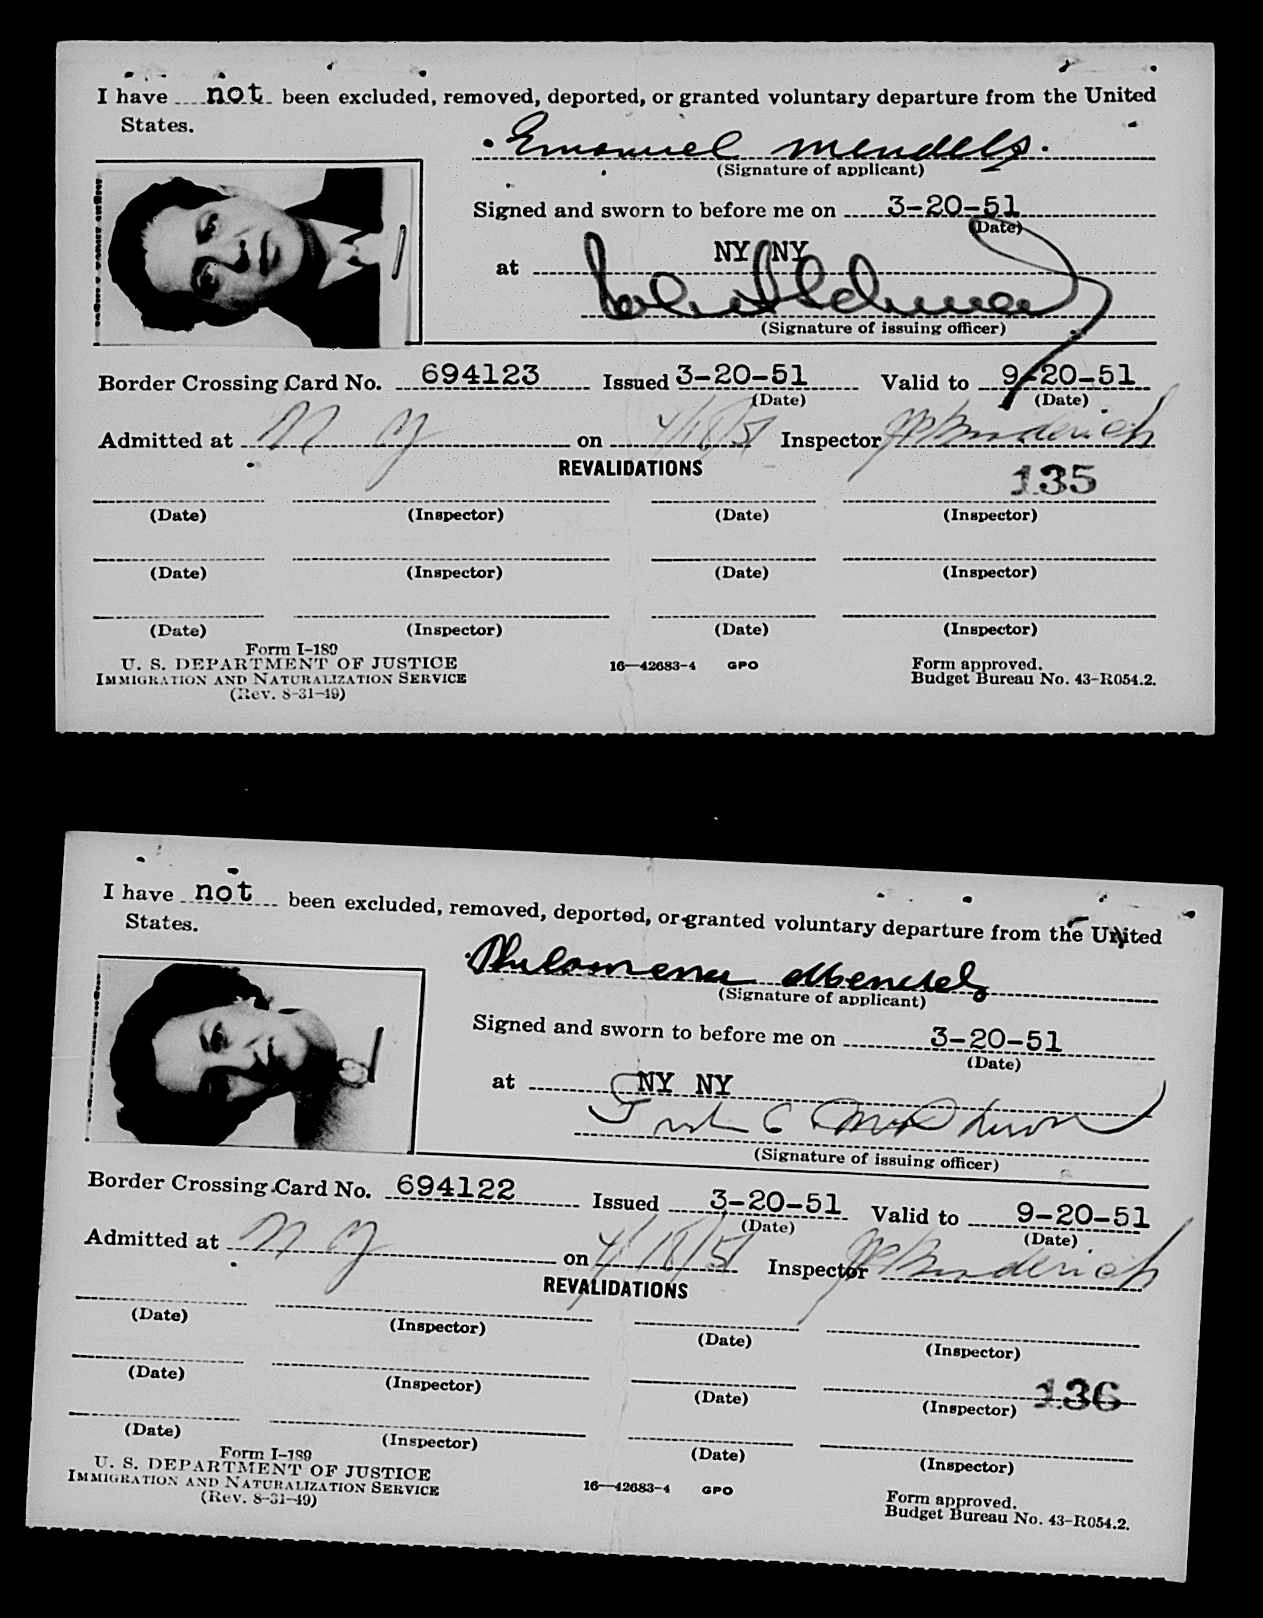 I have not been excluded, removed, deported, or granted voluntary departure from the United
States.
Emanuel Mendels
(Signature of applicant)
Signed and sworn to before me on 3-20-51
(Date)
at NY NY
(Signature of issuing officer)
Border Crossing Card No. 694123 Issued 3-20-51 Valid to 9-20-51
(Date) (Date)
Admitted at N Y on 4/18/51 Inspector
REVALIDATIONS
135
(Date) (Inspector) (Date) (Inspector)
(Date) (Inspector) (Date) (Inspector)
(Date) (Inspector) (Date) (Inspector)
Form I-189
U. S. DEPARTMENT OF JUSTICE 16—42683-4 GPO Form approved.
IMMIGRATION AND NATURALIZATION SERVICE Budget Bureau No. 43-R054.2.
(Rev. 8-31-49)
I have not been excluded, removed, deported, or granted voluntary departure from the United
States.
Philomena Mendels
(Signature of applicant)
Signed and sworn to before me on 3-20-51
(Date)
at NY NY
(Signature of issuing officer)
Border Crossing Card No. 694122 Issued 3-20-51 Valid to 9-20-51
(Date) (Date)
Admitted at N Y on 4/18/51 Inspector
REVALIDATIONS
(Date) (Inspector) (Date) (Inspector)
136
(Date) (Inspector) (Date) (Inspector)
(Date) (Inspector) (Date) (Inspector)
Form I-189
U. S. DEPARTMENT OF JUSTICE 16—42683-4 GPO Form approved.
IMMIGRATION AND NATURALIZATION SERVICE Budget Bureau No. 43-R054.2.
(Rev. 8-31-49)